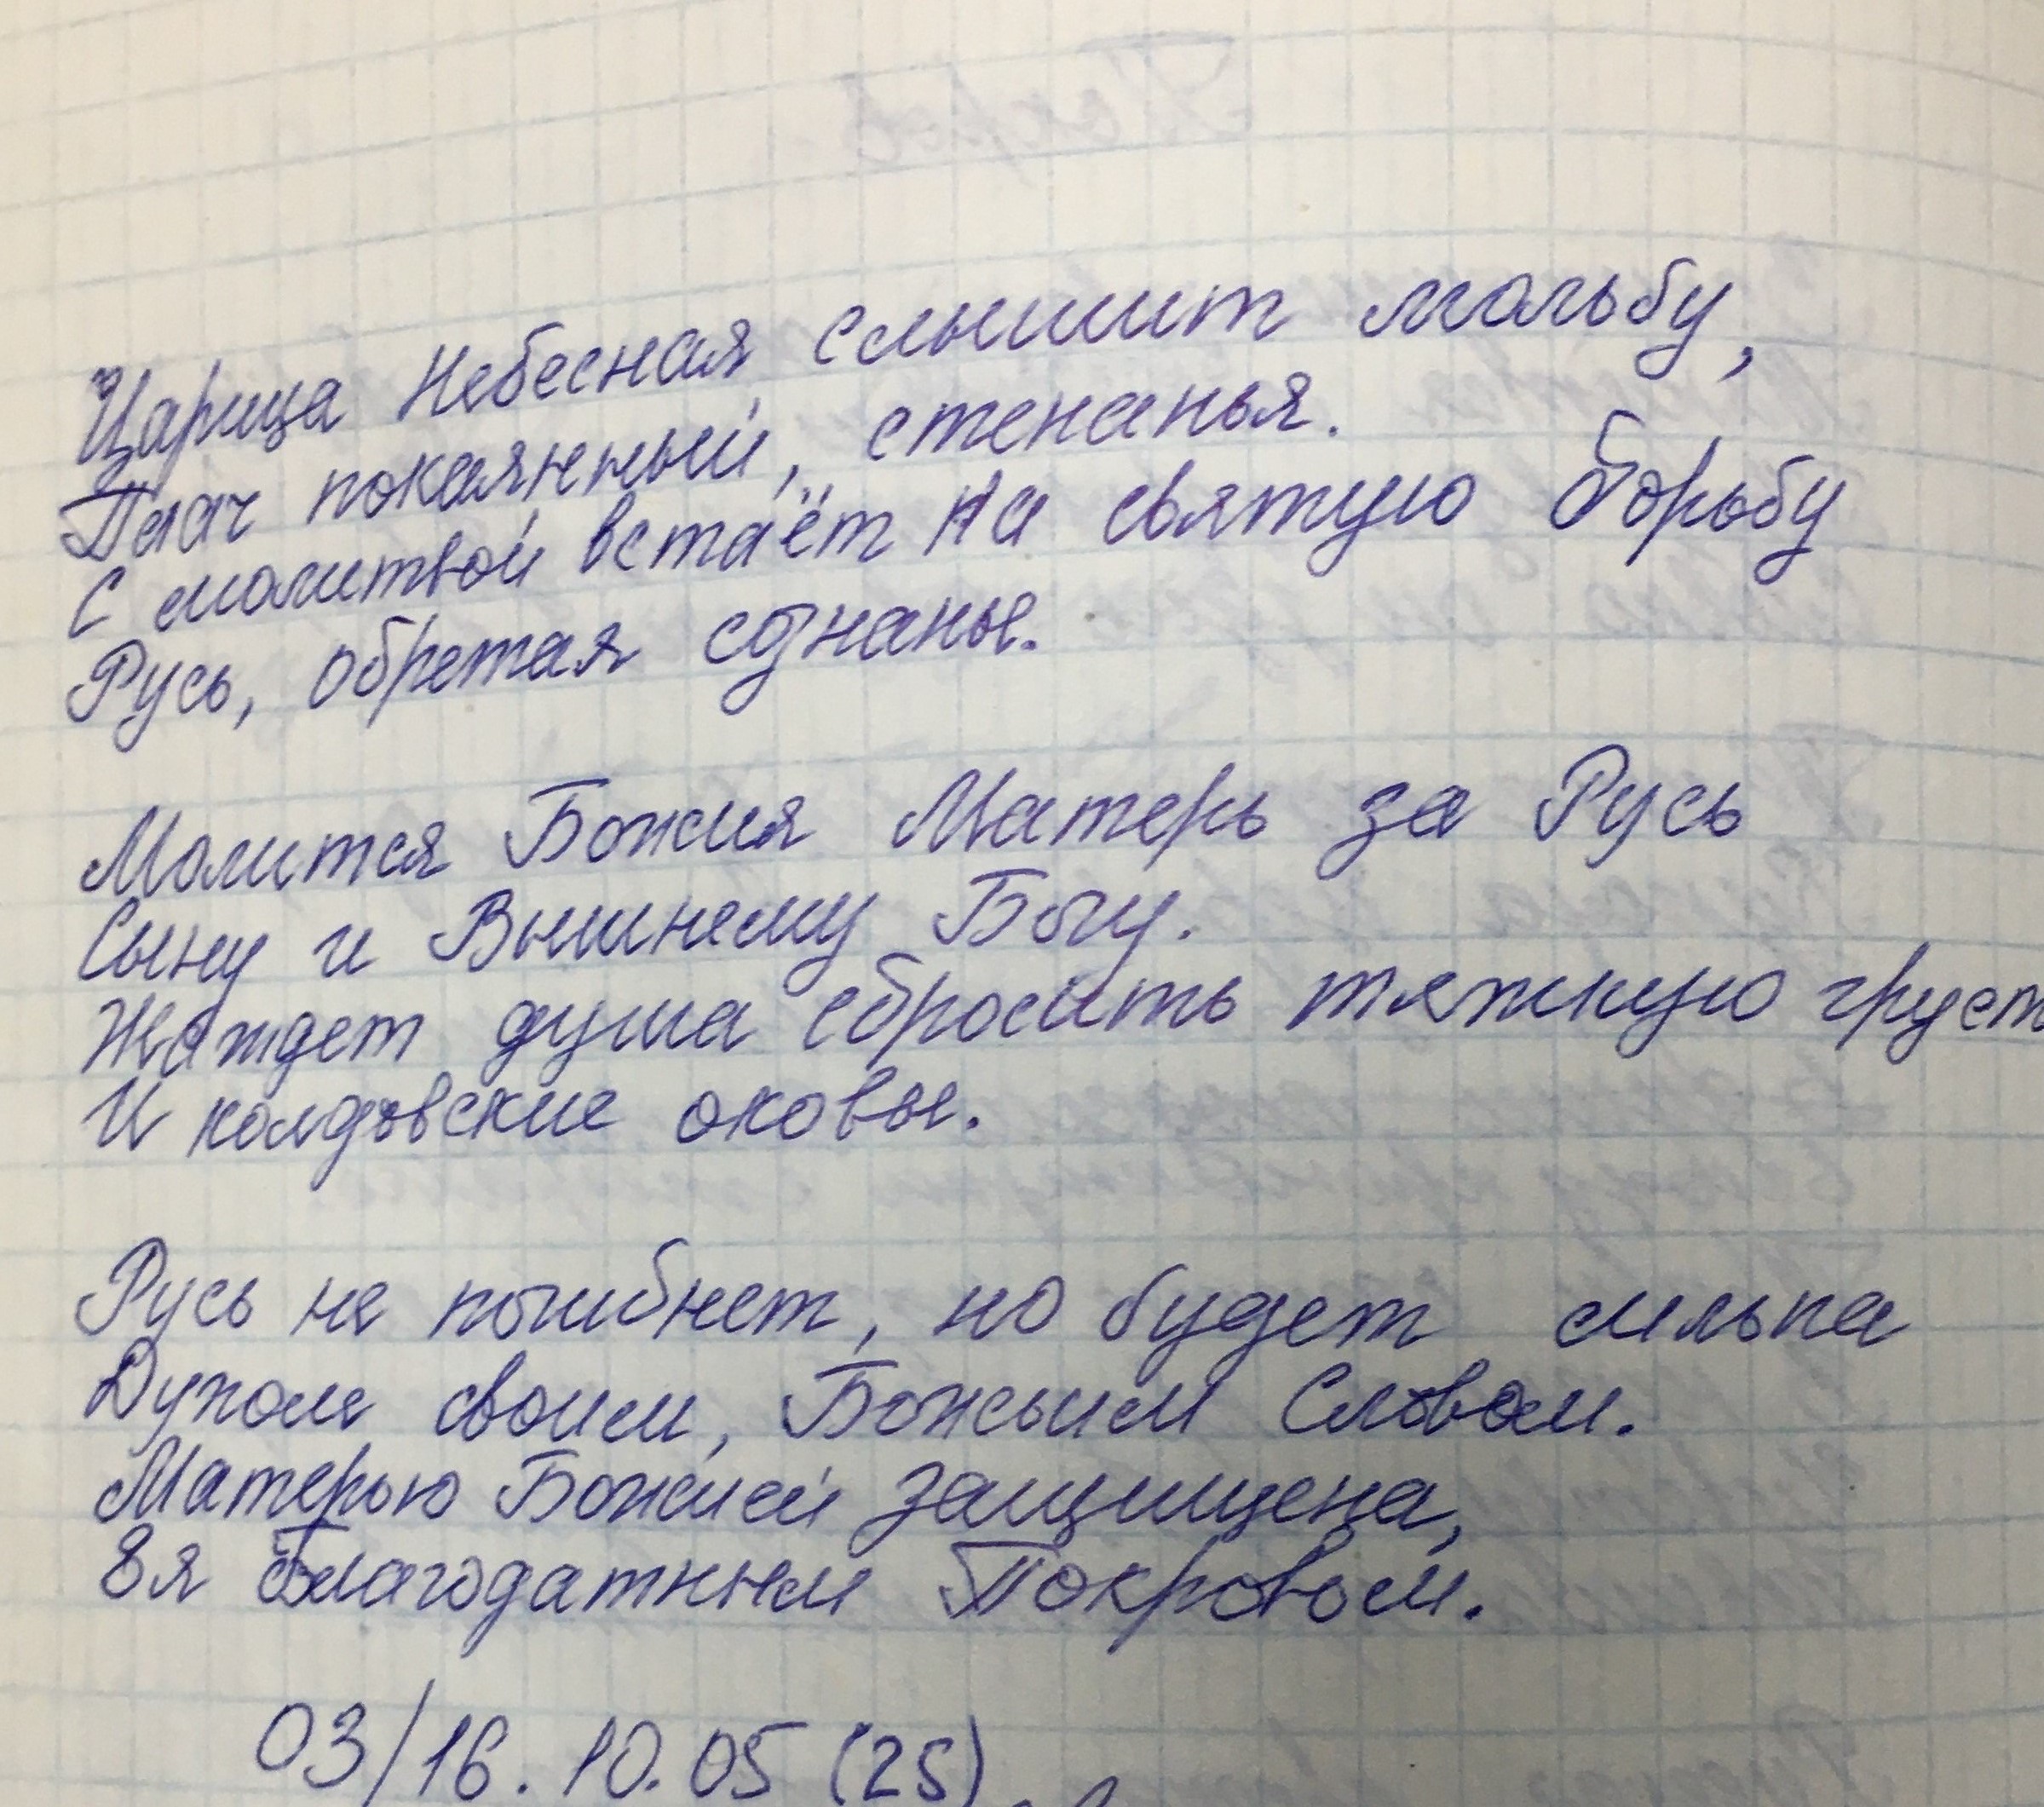 Царица Небесная слышит мольбу,
Плач покаянный, стенанья.
С молитвой встаёт на святую борьбу
Русь, обретая сознанье.
Молится Божия Матерь за Русь
Сыну и Вышнему Богу.
Жаждет душа сбросить тяжкую груст
И колдовские оковы.
Русь не погибнет, но будет сильна
Духом своим, Божьим Словом.
Матерью Божией защищена,
Её Благодатным Покровом.
03/16.10.05 (25)